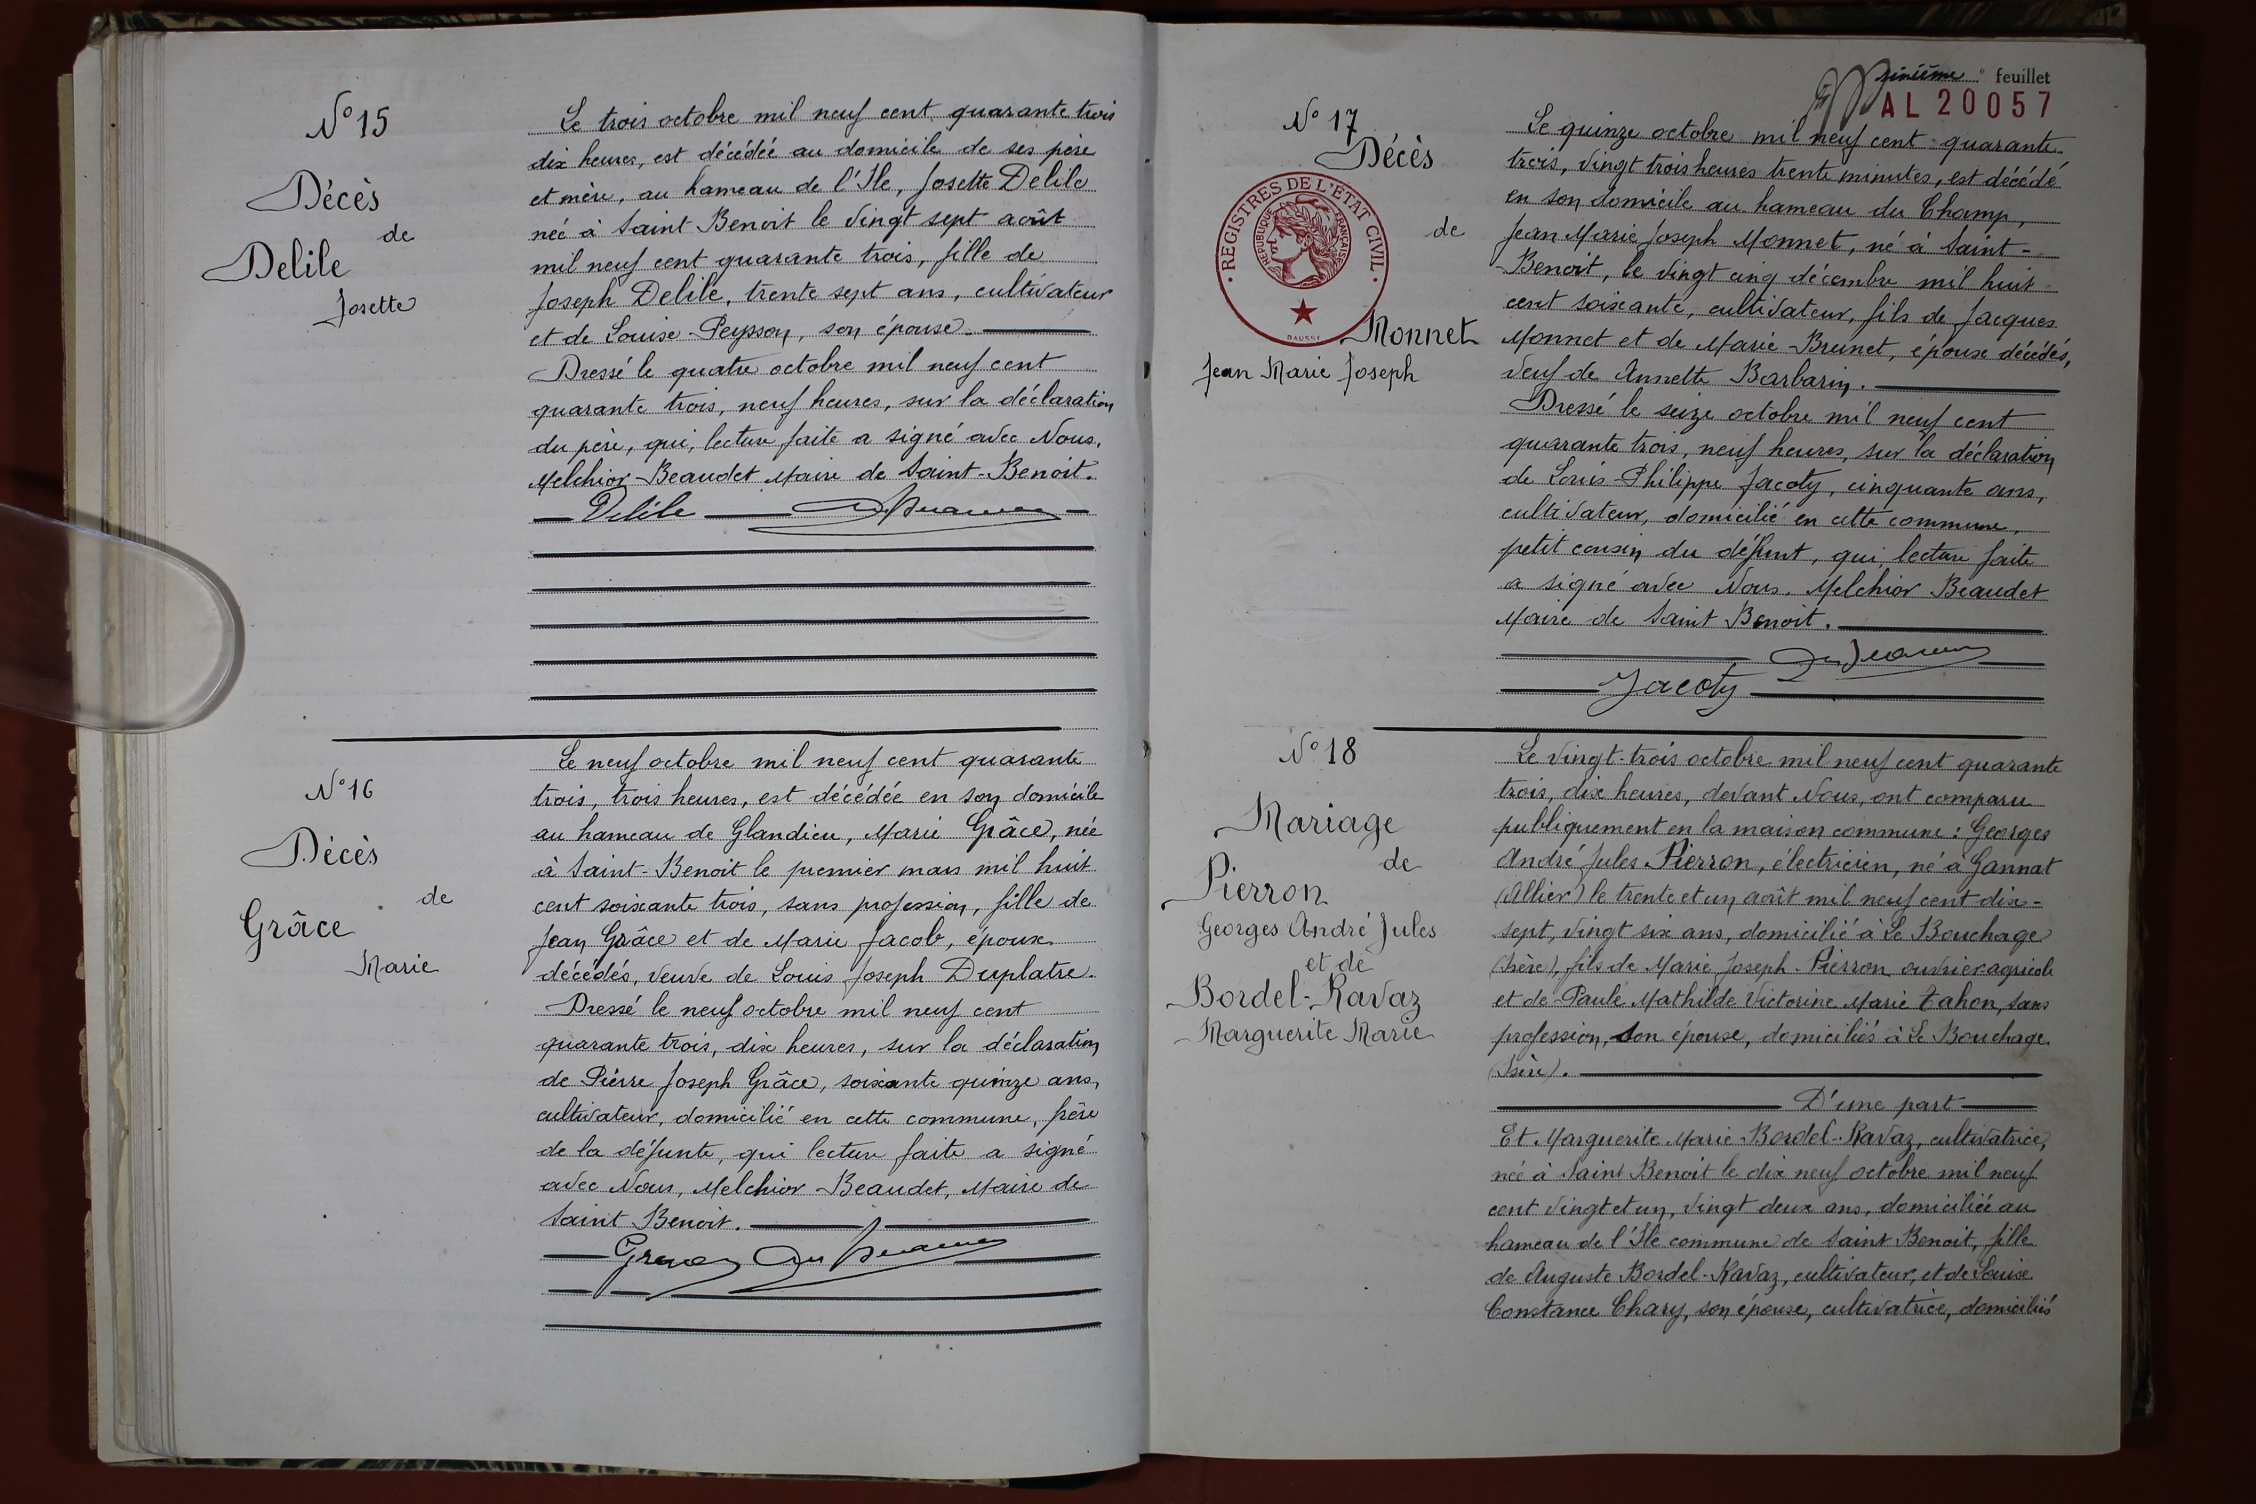 N° 15
Décès
de
Delile
Josette
Le trois octobre mil neuf cent quarante trois
dix heures, est décédée au domicile de ses père
et mère, au hameau de l'Ile, Josette Delile
née à Saint Benoit le vingt sept août
mil neuf cent quarante trois, fille de
Joseph Delile, trente sept ans, cultivateur
et de Louise Peysson, son épouse.
Dressé le quatre octobre mil neuf cent
quarante trois, neuf heures, sur la déclaration
du père, qui, lecture faite a signé avec Nous.
Melchior Beaudet Maire de Saint-Benoit.
Delile
N° 16
Décès
de
Grâce
Marie
Le neuf octobre mil neuf cent quarante
trois, trois heures, est décédée en son domicile
au hameau de Glandieu, Marie Grâce, née
à Saint-Benoit le premier mars mil huit
cent soixante trois, sans profession, fille de
Jean Grâce et de Marie Jacob, époux
décédés, veuve de Louis Joseph Duplatre.
Dressé le neuf octobre mil neuf cent
quarante trois, dix heures, sur la déclaration
de Pierre Joseph Grâce, soixante quinze ans,
cultivateur, domicilié en cette commune, frère
de la défunte, qui lecture faite a signé
avec Nous, Melchior Beaudet, Maire de
Saint Benoit.
seizième feuillet
AL 20057
N° 17
Décès
de
Monnet
Jean Marie Joseph
REGISTRES DE L'ÉTAT CIVIL
RÉPUBLIQUE FRANÇAISE
Le quinze octobre mil neuf cent quarante
trois, vingt trois heures trente minutes, est décédé
en son domicile au hameau du Champ,
Jean Marie Joseph Monnet, né à Saint-
Benoit, le vingt cinq décembre mil huit
cent soixante, cultivateur, fils de Jacques
Monnet et de Marie Brunet, époux décédés,
veuf de Annette Barbarin.
Dressé le seize octobre mil neuf cent
quarante trois, neuf heures, sur la déclaration
de Louis Philippe Jacoty, cinquante ans,
cultivateur, domicilié en cette commune,
petit cousin du défunt, qui lecture faite
a signé avec Nous. Melchior Beaudet
Maire de Saint Benoit.
Jacoty
N° 18
Mariage
de
Pierron
Georges André Jules
et de
Bordel-Ravaz
Marguerite Marie
Le vingt-trois octobre mil neuf cent quarante
trois, dix heures, devant Nous, ont comparu
publiquement en la maison commune : Georges
André Jules Pierron, électricien, né à Gannat
(Allier) le trente et un août mil neuf cent dix-
sept, vingt six ans, domicilié à Le Bouchage
(Isère), fils de Marie Joseph Pierron, ouvrier agricole
et de Paule Mathilde Victorine Marie Zahen, sans
profession, son épouse, domiciliés à Le Bouchage
(Isère).
D'une part
Et Marguerite Marie Bordel-Ravaz, cultivatrice,
née à Saint Benoit le dix neuf octobre mil neuf
cent vingt et un, vingt deux ans, domiciliée au
hameau de l'Ile commune de Saint Benoit, fille
de Auguste Bordel-Ravaz, cultivateur, et de Louise
Constance Chary, son épouse, cultivatrice, domiciliés